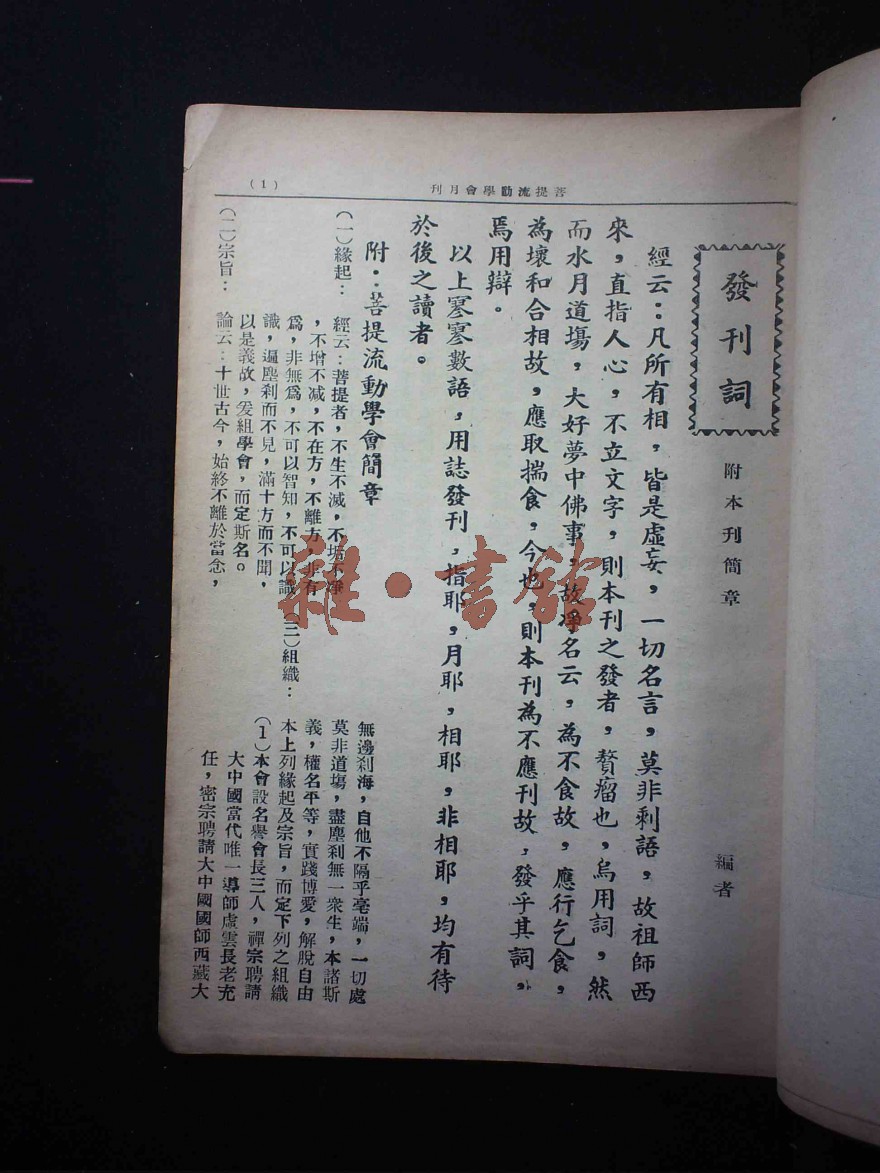 菩提流動學會月刊
(1)
發刊詞
附本刊簡章
編者
經云：凡所有相，皆是虛妄，一切名言，莫非剩語，故祖師西
來，直指人心，不立文字，則本刊之發者，贅瘤也，烏用詞，然
而水月道塲，大好夢中佛事，故淨名云，為不食故，應行乞食，
為壞和合相故，應取揣食，今也，則本刊為不應刊故，發乎其詞，
焉用辯。
以上寥寥數語，用誌發刊，指耶，月耶，相耶，非相耶，均有待
於後之讀者。
附：菩提流動學會簡章
(一)緣起：經云：菩提者，不生不滅，不垢不淨
，不增不減，不在方，不離方，非有
爲，非無爲，不可以智知，不可以識
識，遍塵刹而不見，滿十方而不聞，
以是義故，爰組學會，而定斯名。
(二)宗旨：論云：十世古今，始終不離於當念，
無邊刹海，自他不隔乎毫端，一切處
莫非道塲，盡塵刹無一衆生，本諸斯
義，權名平等，實踐博愛，解脫自由
(三)組織：本上列緣起及宗旨，而定下列之組織
(1)本會設名譽會長三人，禪宗聘請
大中國當代唯一導師虛雲長老充
任，密宗聘請大中國國師西藏大
雜·書館